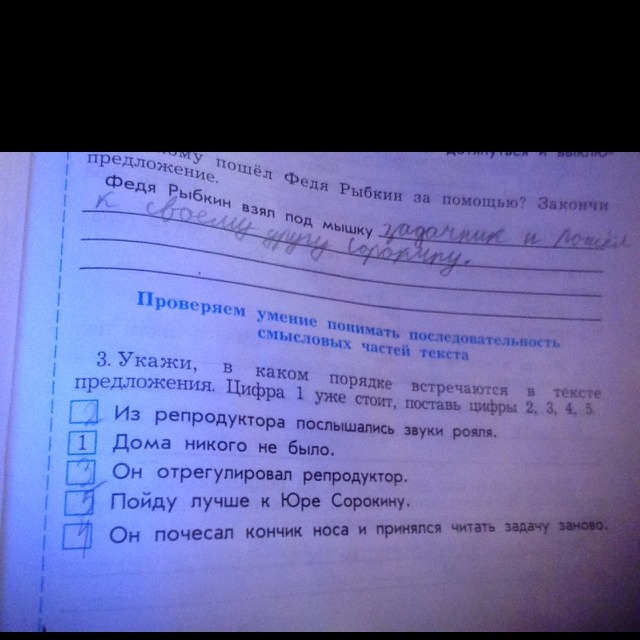 дотянуться и выклю-
кому пошёл Федя Рыбкин за помощью? Закончи
предложение.
Федя Рыбкин взял под мышку задачник и пошёл
к своему другу Сорокину.
Проверяем умение понимать последовательность
смысловых частей текста
3. Укажи, в каком порядке встречаются в тексте
предложения. Цифра 1 уже стоит, поставь цифры 2, 3, 4, 5.
2 Из репродуктора послышались звуки рояля.
1 Дома никого не было.
3 Он отрегулировал репродуктор.
5 Пойду лучше к Юре Сорокину.
4 Он почесал кончик носа и принялся читать задачу заново.